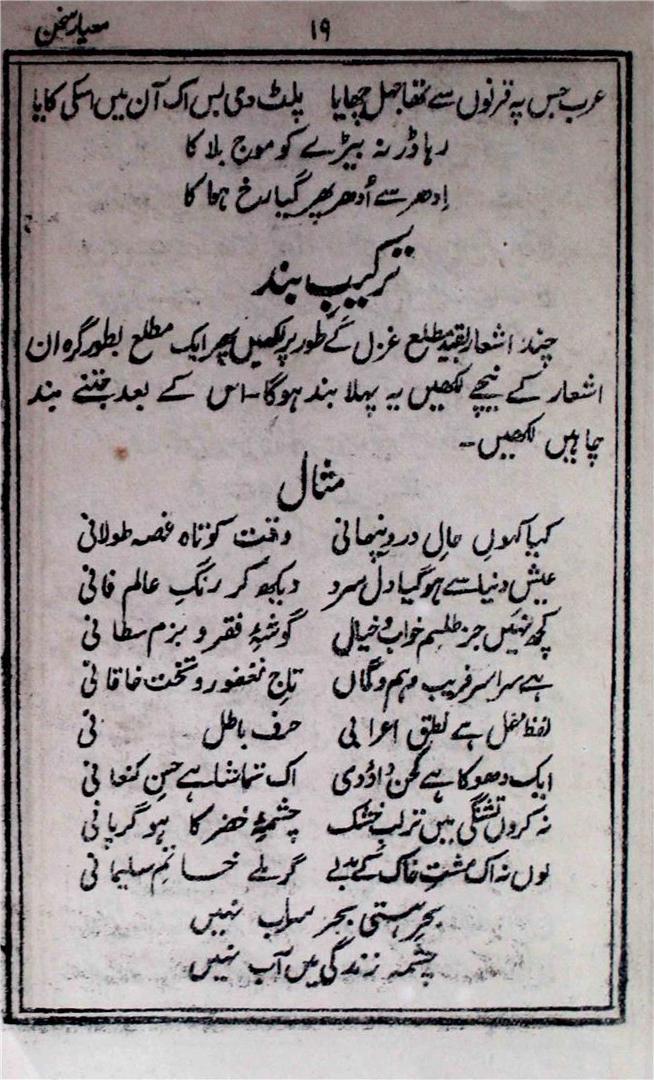 معیار سخن
۱۹
عرب جس پہ قرنوں سے تھا جہل چھایا پلٹ دی بس اک آن میں اسکی کایا
رہا ڈر نہ بیڑے کو موج بلا کا
اِدھر سے اُدھر پھر گیا رخ ہوا کا
ترکیب بند
چند اشعار بقید مطلع غزل کے طور پر لکھیں پھر ایک مطلع بطور گرہ ان
اشعار کے نیچے لکھیں یہ پہلا بند ہوگا۔ اس کے بعد جتنے بند
چاہیں لکھیں۔
مثال
کیا کہوں حالِ درد پنہانی وقت کوتاہ غصہ طولانی
عیش دنیا سے ہوگیا دل سرد دیکھ کر رنگِ عالم فانی
کچھ نہیں جز طلسم خواب و خیال گوشۂ فقر و بزم سلطانی
ہے سراسر فریب وہم و گماں تاجِ فغفور و تخت خاقانی
لفظ مہمل ہے نطقِ اعرابی حرف باطل نی
ایک دھوکا ہے لحن داؤدی اک تماشا ہے حسنِ کنعانی
نہ کروں تشنگی میں تر لب خشک چشمۂ خضر کا ہو گر پانی
لوں نہ اک مشتِ خاک کے بدلے گر ملے خاتمِ سلیمانی
بحرِ ہستی بجز سراب نہیں
چشمہ زندگی میں آب نہیں